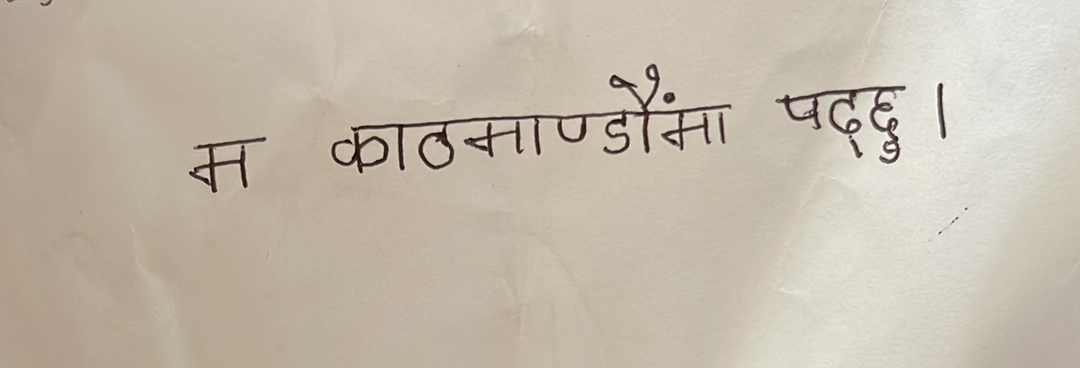 म काठमाण्डौंमा पढ्छु ।